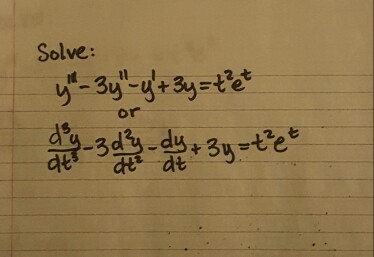 Solve:
y''' - 3y'' - y' + 3y = t²eᵗ
or
d³y/dt³ - 3 d²y/dt² - dy/dt + 3y = t²eᵗ